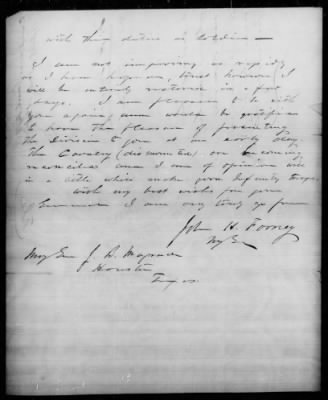 with their duties as soldiers —
I am not improving as rapidly
as I had hoped, trust however I
will be entirely restored in a few
days. I am pleased to be with
you again, and would be gratified
to have the pleasure of presenting
the Division to you at an early day.
The Cavalry (dismounted) are becoming
reconciled and I am of opinion will
in a little while make good Infantry troops.
With my best wishes for your
I am very truly yr friend
John H. Forney
Maj Genl J. B. Magruder
Houston
Texas